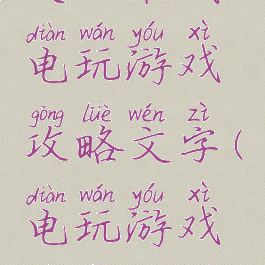 diàn wán yóu xì
电玩游戏
gōng lüè wén zì
攻略文字(
diàn wán yóu xì
电玩游戏